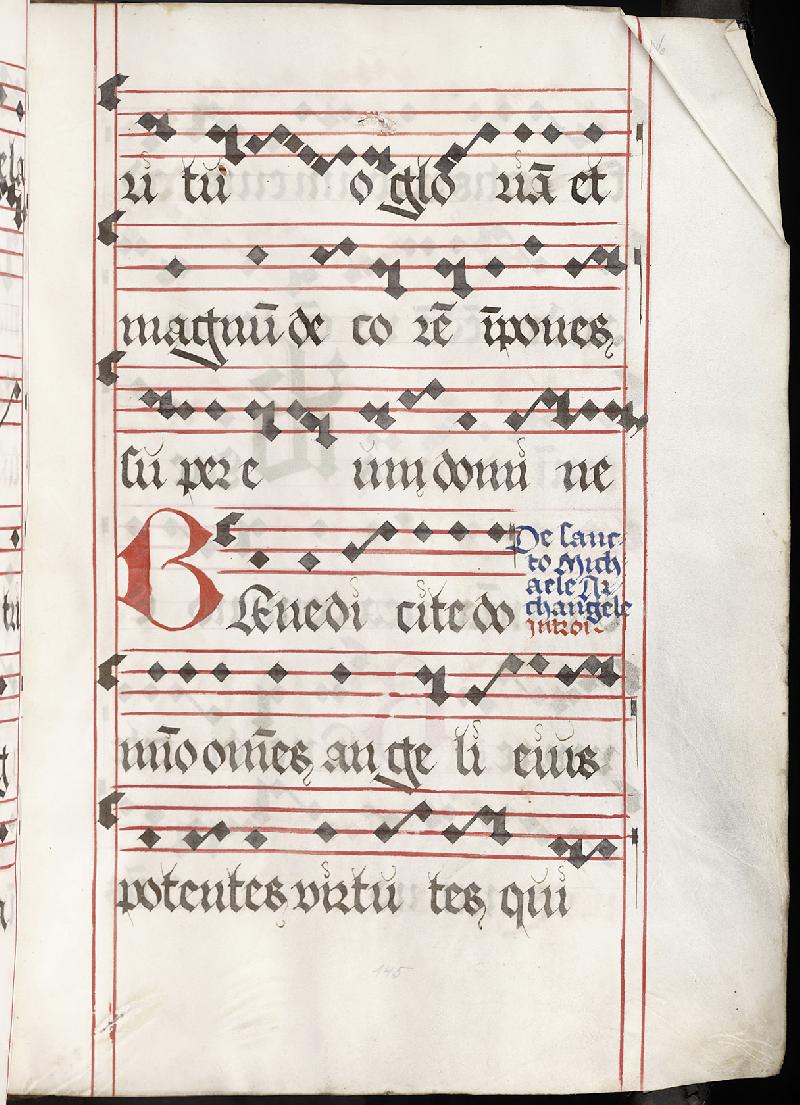 ri tu o glo riā et
magnū de co rē īpones
su per e um domi ne
BEnedi cite do
De sanc-
to Mich
aele Ar
changele
Introi-
mīno om̄es an ge li eius
potentes virtu tes qui
145